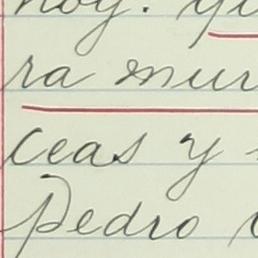 hoy. 
ra mur
ceas y
Pedro